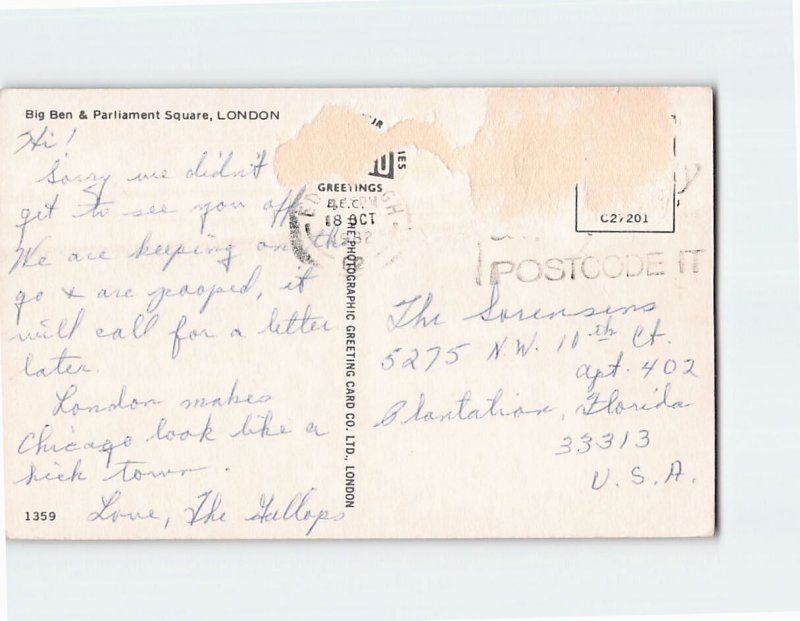 Big Ben & Parliament Square, LONDON
Hi!
Sorry we didn't
get to see you off
We are keeping on the
go & are pooped, it
will call for a letter
later.
London makes
Chicago look like a
hick town.
Love, The Gallops
1359
IES
GREETINGS
THE PHOTOGRAPHIC GREETING CARD CO. LTD., LONDON
18 OCT
C27201
POSTCODE IT
The Sorensens
5275 N.W. 10th Ct.
apt. 402
Plantation, Florida
33313
U.S.A.